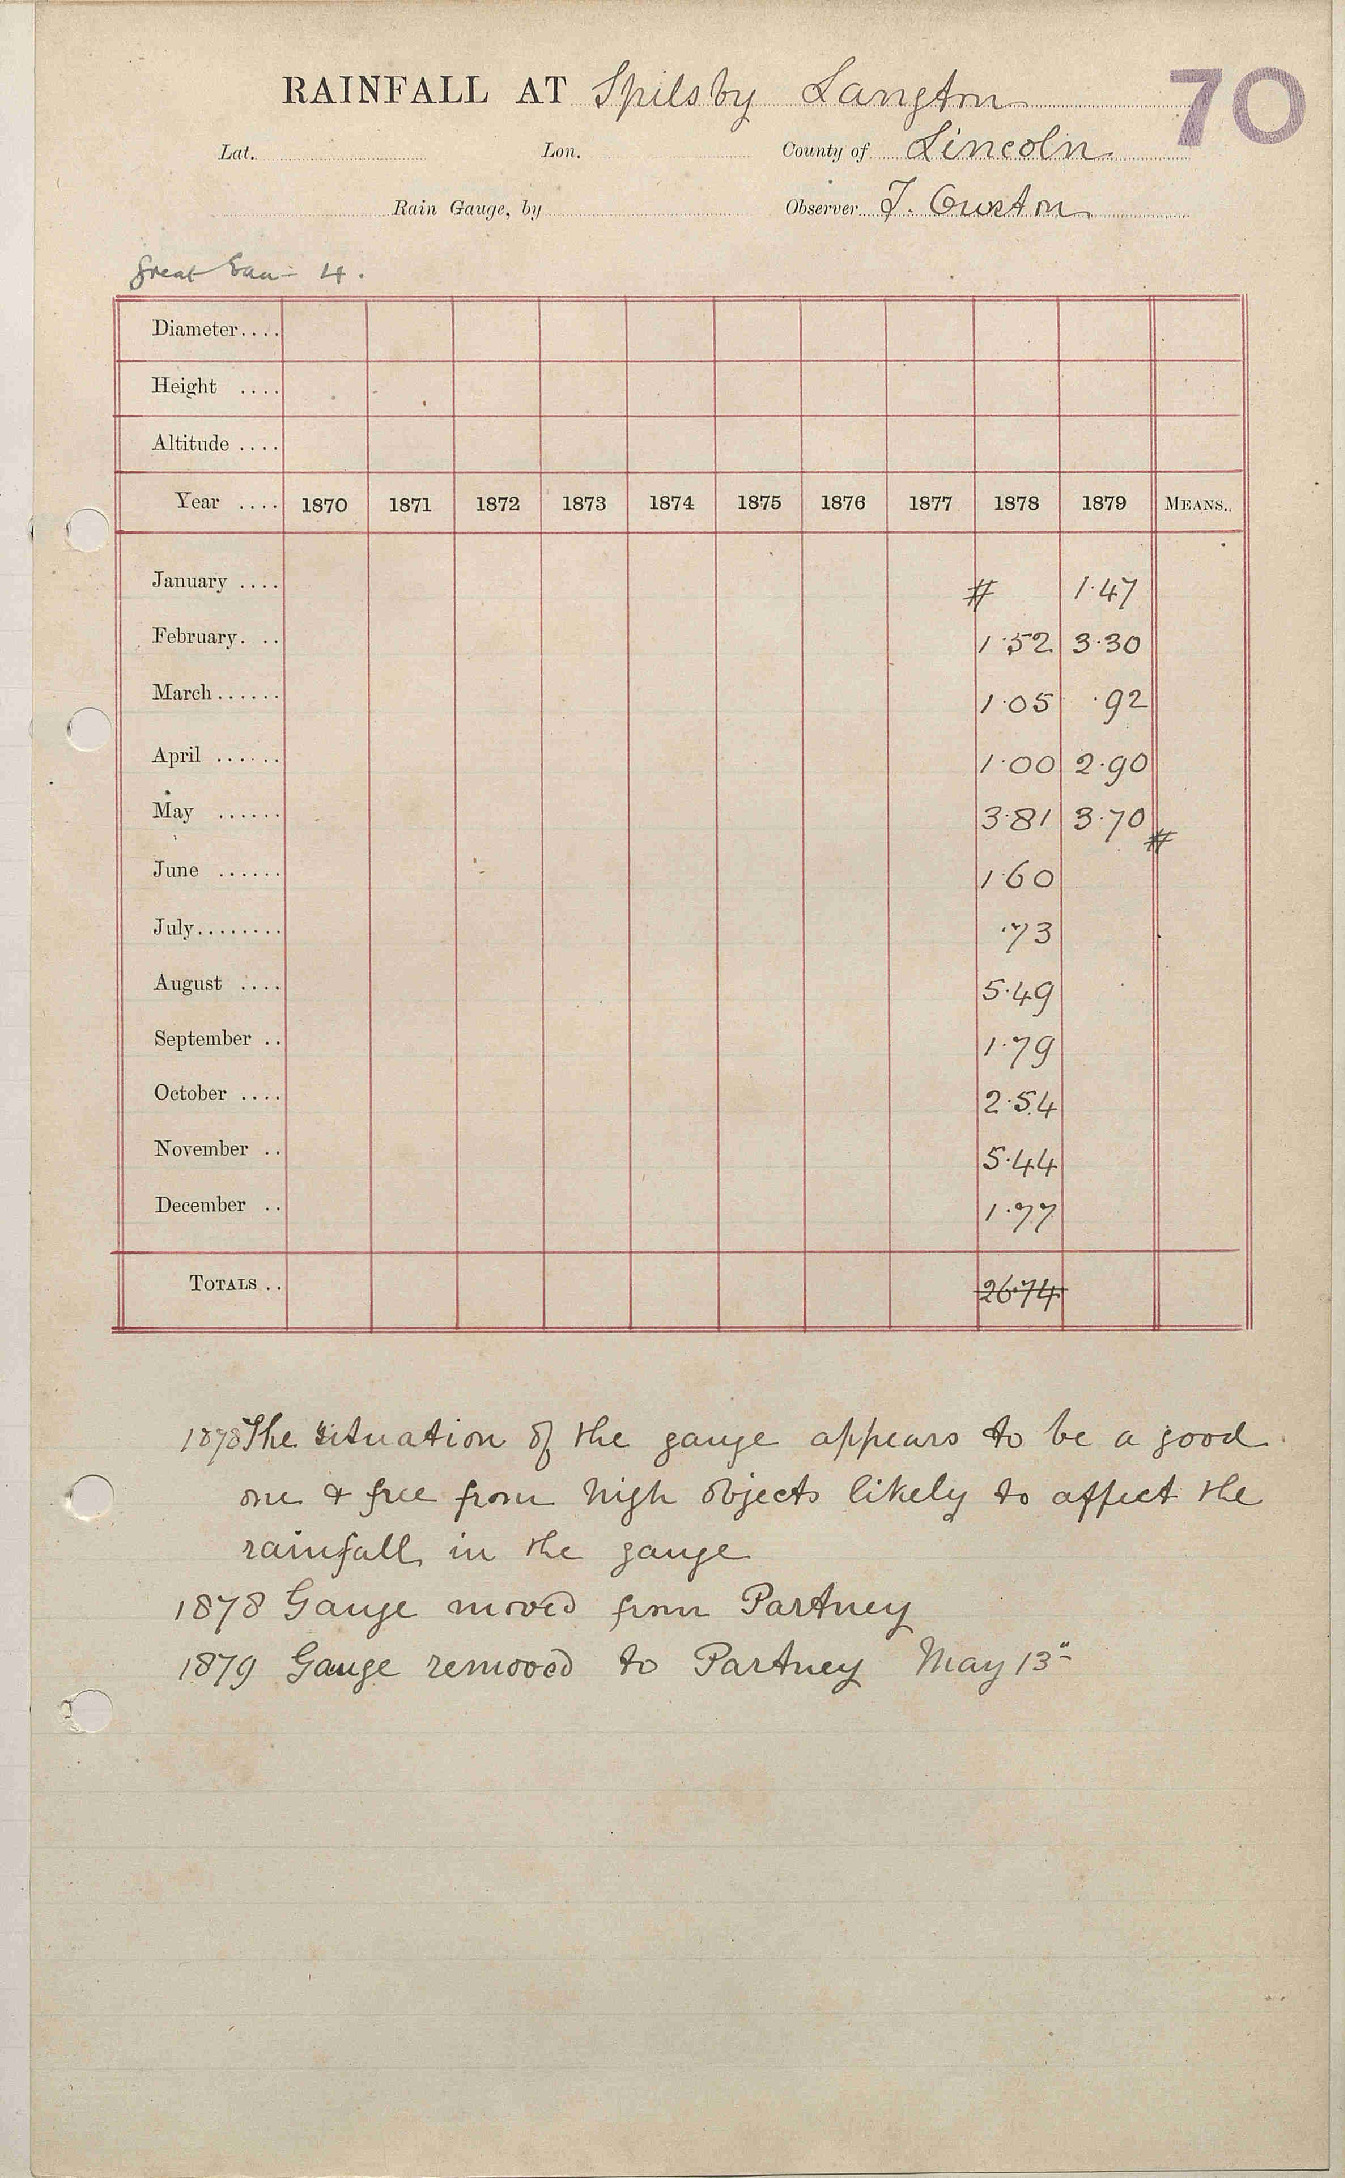 RAINFALL AT Spilsby Langton 70
Lat. Lon. County of Lincoln
Rain Gauge, by Observer
Great Eau 4.
Diameter....
Height ....
Altitude ....
Year .... 1870 1871 1872 1873 1874 1875 1876 1877 1878 1879 MEANS.
January .... # 1.47
February. .. 1.52 3.30
March...... 1.05 .92
April ...... 1.00 2.90
May ...... 3.81 3.70 #
June ...... 1.60
July........ .73
August .... 5.49
September .. 1.79
October .... 2.54
November .. 5.44
December .. 1.77
TOTALS .. 26.74
1878 The situation of the gauge appears to be a good
one & free from high objects likely to affect the
rainfall in the gauge
1878 Gauge moved from Partney
1879 Gauge removed to Partney May 13